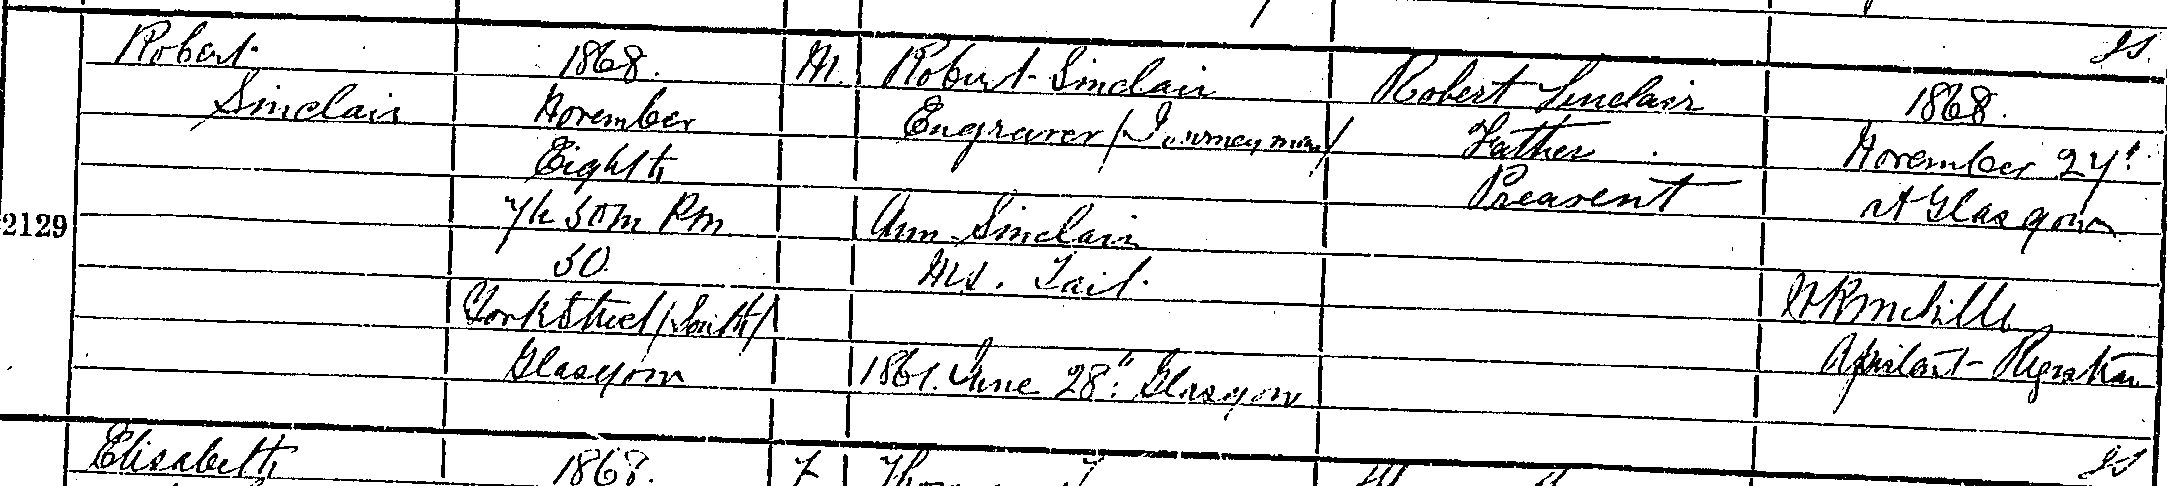 Js.
Robert
Sinclair
2129
1868.
November
Eighth
7h 30m PM
50.
York Street (South)
Glasgow
M.
Robert Sinclair
Engraver (Journeyman)
Ann Sinclair
Ms. Tait.
1861. June 28th. Glasgow
Robert Sinclair
Father
Present
1868.
November 27th.
At Glasgow
Assistant Registrar
Elisabeth
1868.
F
Js